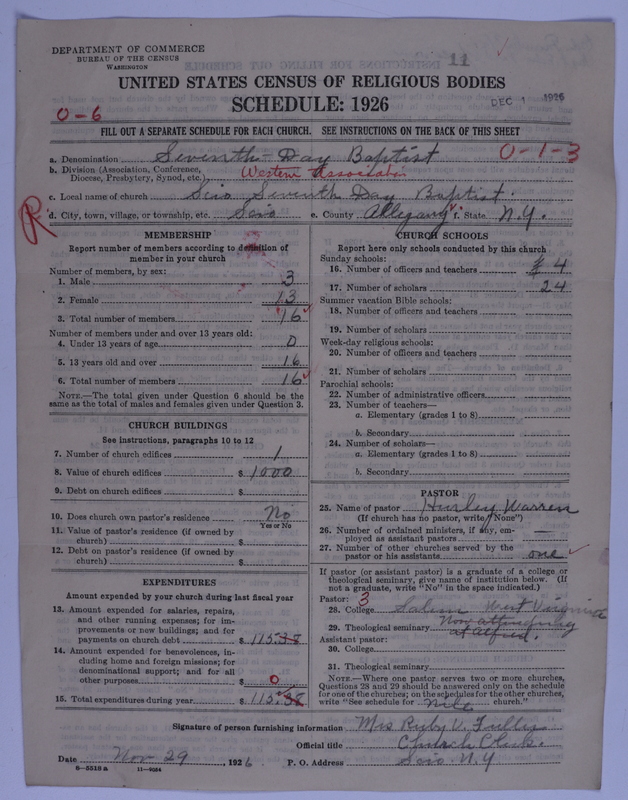 11
DEPARTMENT OF COMMERCE
BUREAU OF THE CENSUS
WASHINGTON
UNITED STATES CENSUS OF RELIGIOUS BODIES
SCHEDULE: 1926
DEC 1 1926
0-6
FILL OUT A SEPARATE SCHEDULE FOR EACH CHURCH. SEE INSTRUCTIONS ON THE BACK OF THIS SHEET
a. Denomination Seventh-Day Baptist 0-1-3
b. Division (Association, Conference, Diocese, Presbytery, Synod, etc.) Western Association
c. Local name of church Scio Seventh Day Baptist.
R
d. City, town, village, or township, etc. Scio e. County Allegany f. State N.Y.
MEMBERSHIP
Report number of members according to definition of
member in your church
Number of members, by sex:
1. Male 3
2. Female 13
3. Total number of members 16
Number of members under and over 13 years old:
4. Under 13 years of age 0
5. 13 years old and over 16
6. Total number of members 16
NOTE.—The total given under Question 6 should be the
same as the total of males and females given under Question 3.
CHURCH BUILDINGS
See instructions, paragraphs 10 to 12
7. Number of church edifices 1
8. Value of church edifices $ 1000
9. Debt on church edifices $
10. Does church own pastor's residence No
Yes or No
11. Value of pastor's residence (if owned by
church) $
12. Debt on pastor's residence (if owned by
church) $
EXPENDITURES
Amount expended by your church during last fiscal year
13. Amount expended for salaries, repairs,
and other running expenses; for im-
provements or new buildings; and for
payments on church debt $ 115.38
14. Amount expended for benevolences, in-
cluding home and foreign missions; for
denominational support; and for all
other purposes $ 0
15. Total expenditures during year $ 115.38
CHURCH SCHOOLS
Report here only schools conducted by this church
Sunday schools:
16. Number of officers and teachers 4
17. Number of scholars 24
Summer vacation Bible schools:
18. Number of officers and teachers
19. Number of scholars
Week-day religious schools:
20. Number of officers and teachers
21. Number of scholars
Parochial schools:
22. Number of administrative officers
23. Number of teachers—
a. Elementary (grades 1 to 8)
b. Secondary
24. Number of scholars—
a. Elementary (grades 1 to 8)
b. Secondary
PASTOR
25. Name of pastor Hurley Warren
(If church has no pastor, write "None")
26. Number of ordained ministers, if any, em-
ployed as assistant pastors —
27. Number of other churches served by the
pastor or his assistants one
If pastor (or assistant pastor) is a graduate of a college or
theological seminary, give name of institution below. (If
not a graduate, write "No" in the space indicated.)
Pastor: 3
28. College Salem West Virginia
29. Theological seminary Now attending
at Alfred.
Assistant pastor:
30. College
31. Theological seminary
NOTE.—Where one pastor serves two or more churches,
Questions 28 and 29 should be answered only on the schedule
for one of the churches; on the schedules for the other churches,
write "See schedule for Nile church."
Signature of person furnishing information Mrs Ruby V. Fuller
Official title Church Clerk.
Date Nov 29, 1926 P. O. Address Scio N.Y
6—5519 a 11—4054